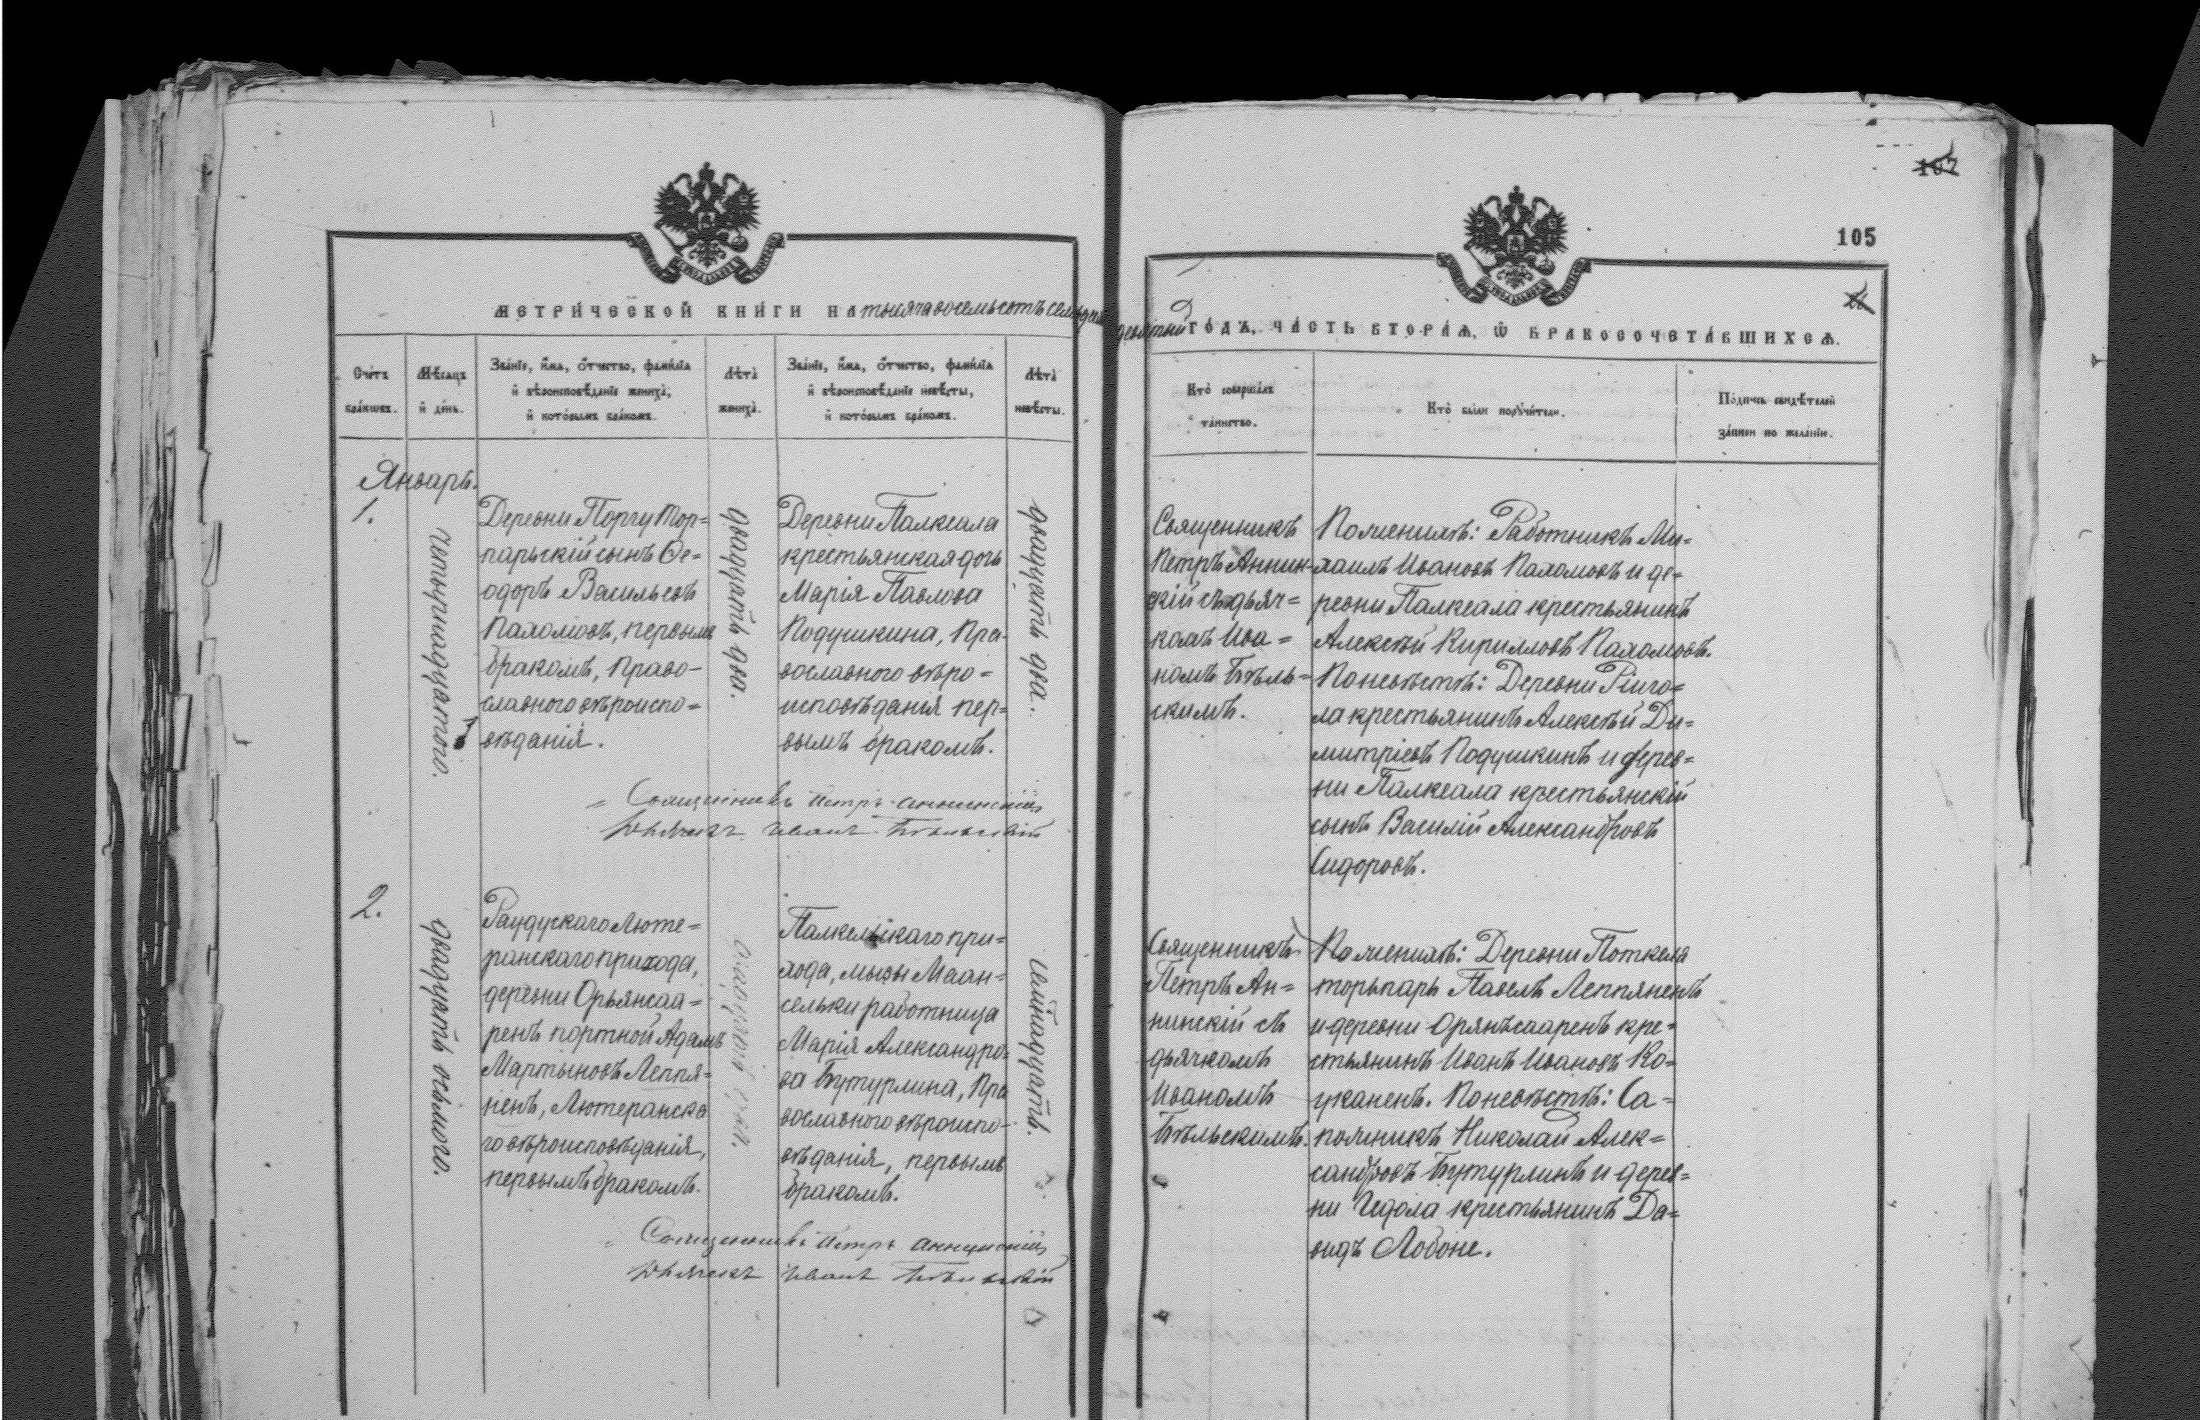 105
МЕТРИ́ЧЕСКОЙ КНИ́ГИ НА тысяча восемьсотъ семьдесятъ
девятый ГО́ДЪ, ЧА́СТЬ ВТОРА́Я, Ѡ БРАКОСОЧЕТА́ВШИХСЯ.
Сче́тъ
бра́ковъ.
Мѣ́сяцъ
и҆ де́нь.
Зва́нїе, и҆́мя, ѻ҆́тчество, фами́лїа
и҆ вѣроисповѣ́данїе жениха̀,
и҆ кото́рымъ бра́комъ.
Лѣта̀
жениха̀.
Зва́нїе, и҆́мя, ѻ҆́тчество, фами́лїа
и҆ вѣроисповѣ́данїе невѣ́сты,
и҆ кото́рымъ бра́комъ.
Лѣта̀
невѣ́сты.
Кто̀ соверша́лъ
та́инство.
Кто̀ бы́ли поручи́тели.
По́дпись свидѣ́телей
за́писи по жела́нїю.
Январь.
1.
четырнадцатого.
Деревни Поргу Тор=
парьскій сынъ Ѳе=
одоръ Васильевъ
Пахомовъ, первымъ
бракомъ, Право-
славного вѣроиспо=
вѣданія.
двадцать два.
Деревни Палкеала
крестьянская дочь
Марія Павлова
Подушкина, Пра-
вославного вѣро=
исповѣданія пер=
вымъ бракомъ.
двадцать два.
Священникъ
Петръ Аннин-
скій съ дьяч=
комъ Ива=
номъ Бѣль=
скимъ.
По женихѣ: Работникъ Ми=
хаилъ Ивановъ Пахомовъ и де=
ревни Палкеала крестьянинъ
Алексѣй Кирилловъ Пахомовъ.
По невѣстѣ: Деревни Рійго=
ла крестьянинъ Алексѣй Ди=
митріевъ Подушкинъ и дерев=
ни Палкеала крестьянскій
сынъ Василій Александровъ
Сидоровъ.
Священникъ Петръ Аннинскій
Дьячекъ Иванъ Бѣльскій
2.
двадцать осьмого.
Раудускаго Люте=
ранскаго прихода,
деревни Орьянсаа=
ренъ портной Адамъ
Мартыновъ Леппя=
ненъ, Лютеранска
го вѣроисповѣданія,
первымъ бракомъ.
Палкельскаго при=
хода, мызы Маан=
сельки работница
Марія Александро-
ва Бутурлина, Пра
вославного вѣроиспо-
вѣданія, первымъ
бракомъ.
семнадцать.
Священникъ
Петръ Ан=
нинскій съ
дьячкомъ
Иваномъ
Бѣльскимъ.
По женихѣ: Деревни Поткеля
торьпарь Павелъ Леппяненъ
и деревни Орянъсааренъ кре=
стьянинъ Иванъ Ивановъ Ко=
уканенъ. По невѣстѣ: Са=
пожникъ Николай Алек=
сандровъ Бутурлинъ и дерев=
ни Чедола крестьянинъ Да=
видъ Лобоне.
Священникъ Петръ Аннинскій
Дьячекъ Иванъ Бѣльскій